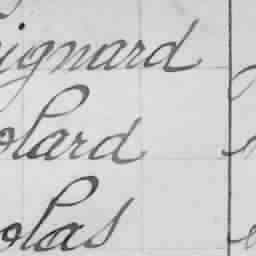 ignard
olard
olas